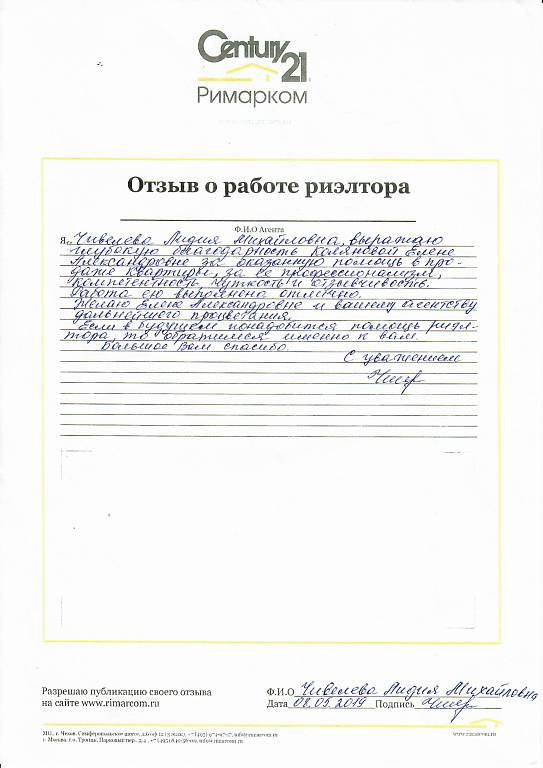 Century 21
Римарком
Отзыв о работе риэлтора
Ф.И.О Агента
Я, Чивелева Лидия Михайловна, выражаю
глубокую благодарность Коляновой Елене
Александровне за оказанную помощь в про-
даже квартиры, за её профессионализм,
компетентность, чуткость и отзывчивость.
Работа ею выполнена отлично.
Желаю Елене Александровне и вашему агентству
дальнейшего процветания.
Если в будущем понадобится помощь риэл-
тора, то обратимся именно к вам.
Большое Вам спасибо.
С уважением
Разрешаю публикацию своего отзыва
на сайте www.rimarcom.ru
Ф.И.О Чивелева Лидия Михайловна
Дата 08.05.2019 Подпись
МО, г. Чехов, Симферопольское шоссе
г. Москва, г.о. Троицк, Парковый пер.
www.rimarcom.ru